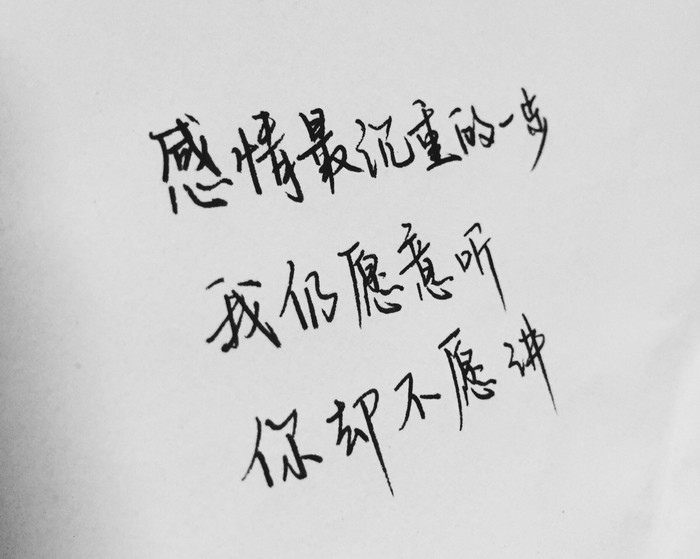 感情最沉重的一步
我仍愿意听
你却不愿讲